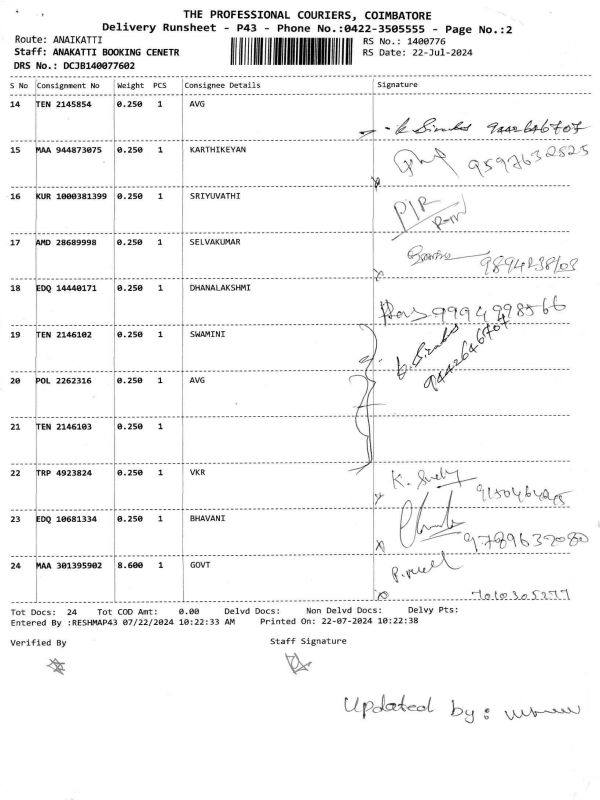 THE PROFESSIONAL COURIERS, COIMBATORE
Delivery Runsheet - P43 - Phone No.:0422-3505555 - Page No.:2
Route: ANAIKATTI RS No.: 1400776
Staff: ANAKATTI BOOKING CENETR RS Date: 22-Jul-2024
DRS No.: DCJB140077602
S No Consignment No Weight PCS Consignee Details Signature
14 TEN 2145854 0.250 1 AVG
9442646707
15 MAA 944873075 0.250 1 KARTHIKEYAN 9597632825
16 KUR 1000381399 0.250 1 SRIYUVATHI
17 AMD 28689998 0.250 1 SELVAKUMAR
9894238103
18 EDQ 14440171 0.250 1 DHANALAKSHMI
9994998566
19 TEN 2146102 0.250 1 SWAMINI
9442646707
20 POL 2262316 0.250 1 AVG
21 TEN 2146103 0.250 1
22 TRP 4923824 0.250 1 VKR
23 EDQ 10681334 0.250 1 BHAVANI
9789632080
24 MAA 301395902 8.600 1 GOVT
7010305277
Tot Docs: 24 Tot COD Amt: 0.00 Delvd Docs: Non Delvd Docs: Delvy Pts:
Entered By :RESHMAP43 07/22/2024 10:22:33 AM Printed On: 22-07-2024 10:22:38
Verified By Staff Signature
Updated by: